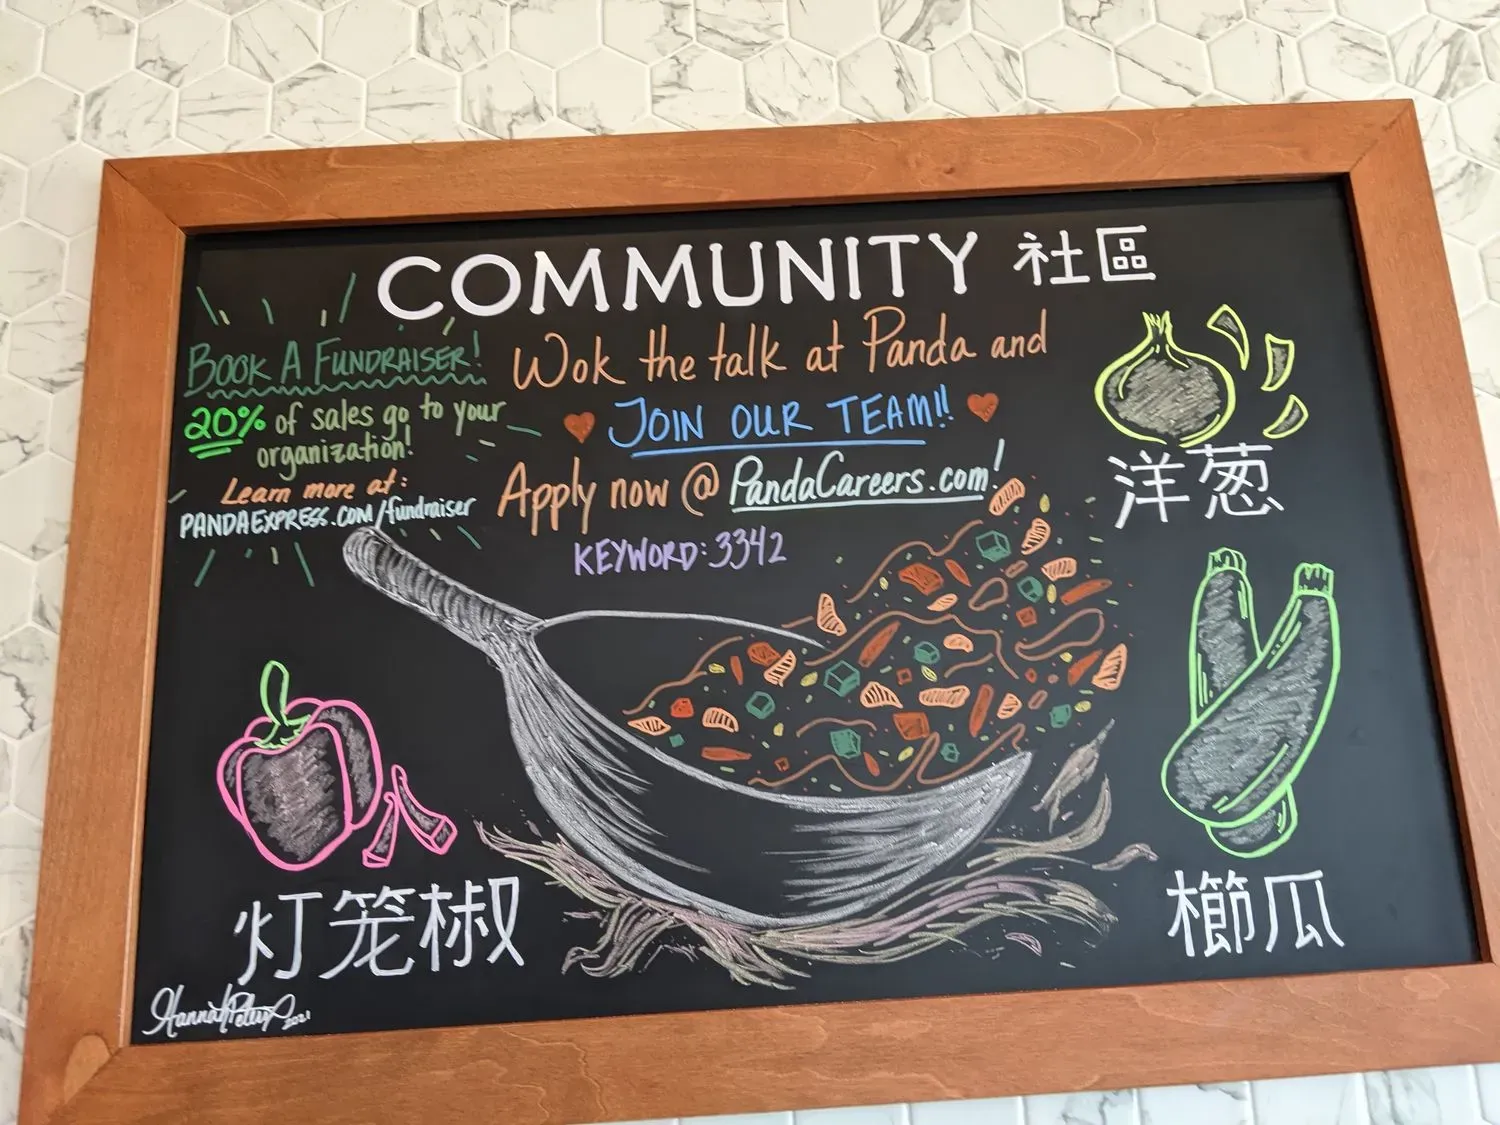 COMMUNITY 社區
BOOK A FUNDRAISER!
20% of sales go to your
organization!
Learn more at:
PANDAEXPRESS.COM/fundraiser
Wok the talk at Panda and
JOIN OUR TEAM!!
Apply now @ PandaCareers.com!
KEYWORD: 3342
洋葱
灯笼椒
櫛瓜
Hannah 2021